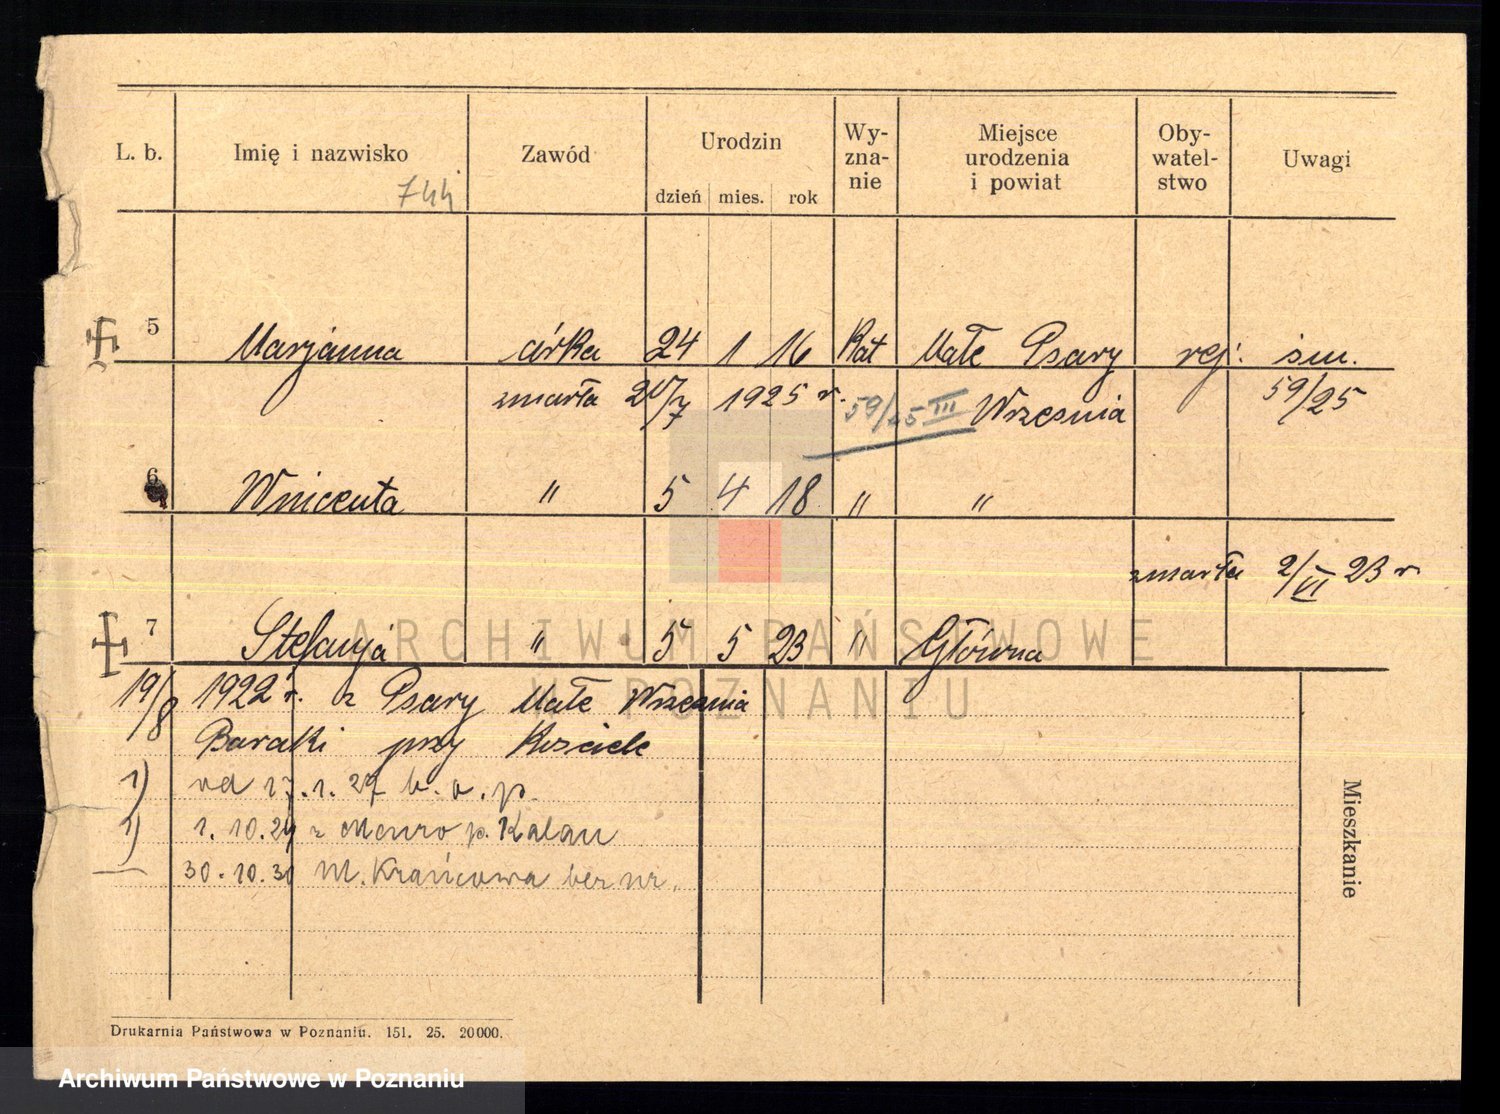 L. b. Imię i nazwisko Zawód Urodzin dzień mies. rok Wy-zna-nie Miejsce urodzenia i powiat Oby-watel-stwo Uwagi
5 Marjanna córka 24 1 16 Kat Małe Psary rej. śm.
zmarła 1925 r. 59/25 III Września 59/25
6 Wnicenta " 5 4 18 " "
zmarła 2/VI 23 r
7 Stefanja " 5 5 23 " Główna
ARCHIWUM PAŃSTWOWE
W POZNANIU
19/8 1922 r. z Psary Małe Września
Baraki przy Kościele
1) od 17.1.27 b. o. p.
1) 1.10.29 z p. Kalau
30.10.30 m. Krańcowa bez nr.
Mieszkanie
Drukarnia Państwowa w Poznaniu. 151. 25. 20000.
Archiwum Państwowe w Poznaniu